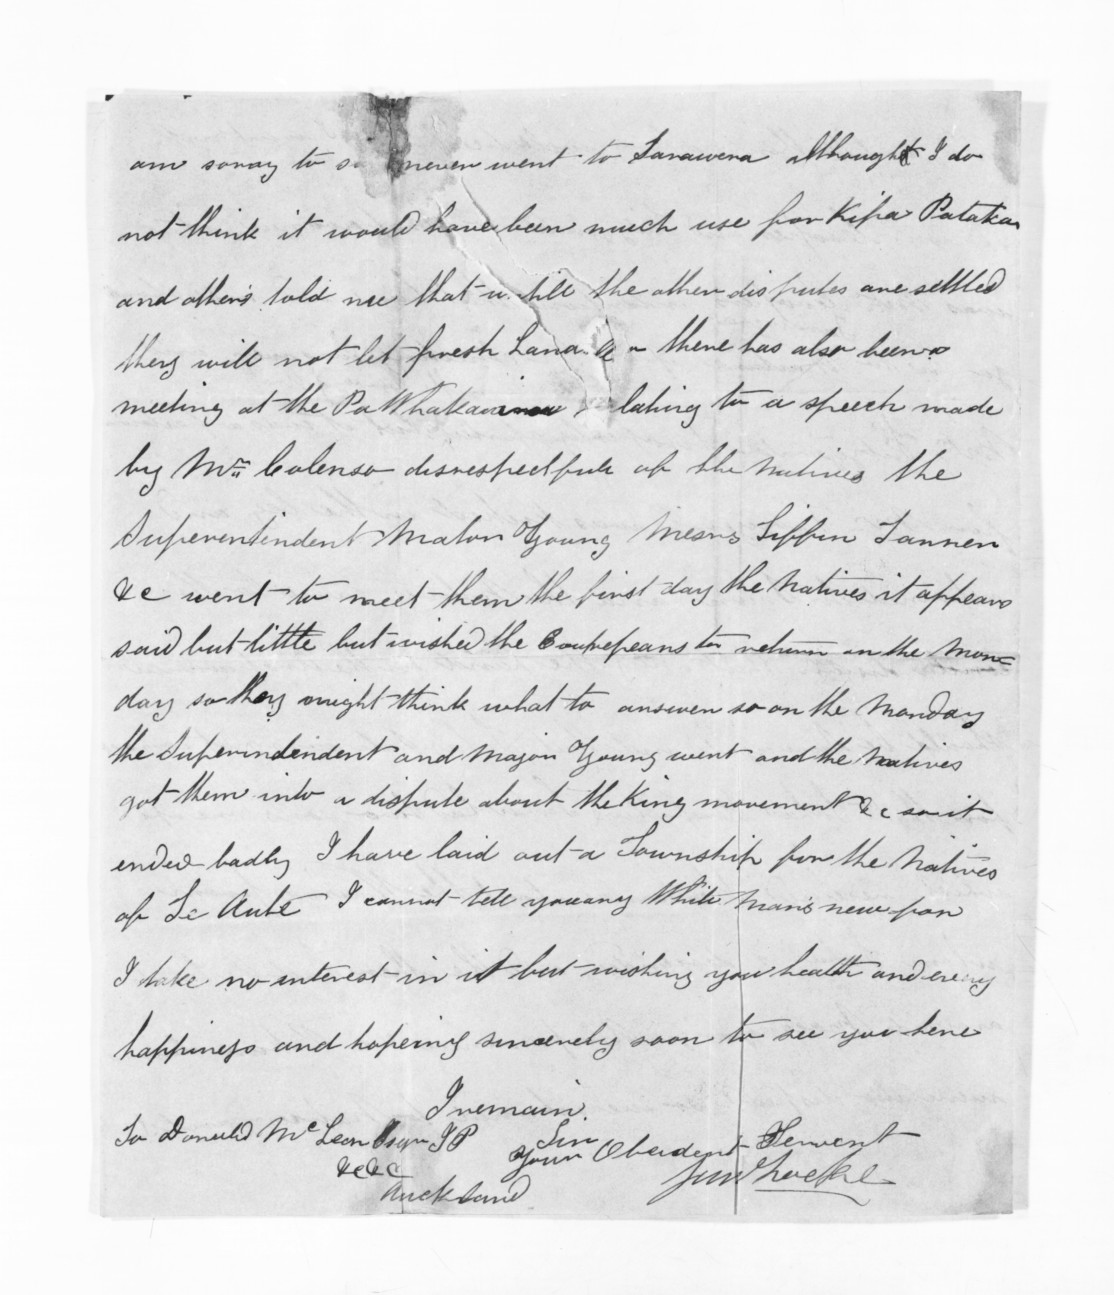 am soray to s never went to Tarawera althought I do
not think it would have been much use for Kipa Patakai
and others told me that untill the other disputes are settled
they will not let fresh Land there has also been a
meeting at the Pa Whakairo lating to a speech made
by Mr Colenso disrespectful of the Natives the
Superentindent Mator Young Mesrs Tiffin Tanner
&c went to meet them the first day the Natives it appears
said but little but wished the Eouropeans to return on the Mon=
day so they might think what to answer so on the Monday
the Superindendent and Major Young went and the natives
got them into a dispute about the King movement &c so it
ended badly I have laid out a Township for the Natives
of Te Aute I cannot tell you any White Man's new for
I take no interest in it but wishing you health and every
happiness and hopeing sincerely soon to see you here
I remain
Sir
To Donald McLean Esqr JP Your Obedent Servent
&c &c Locke
Auckland